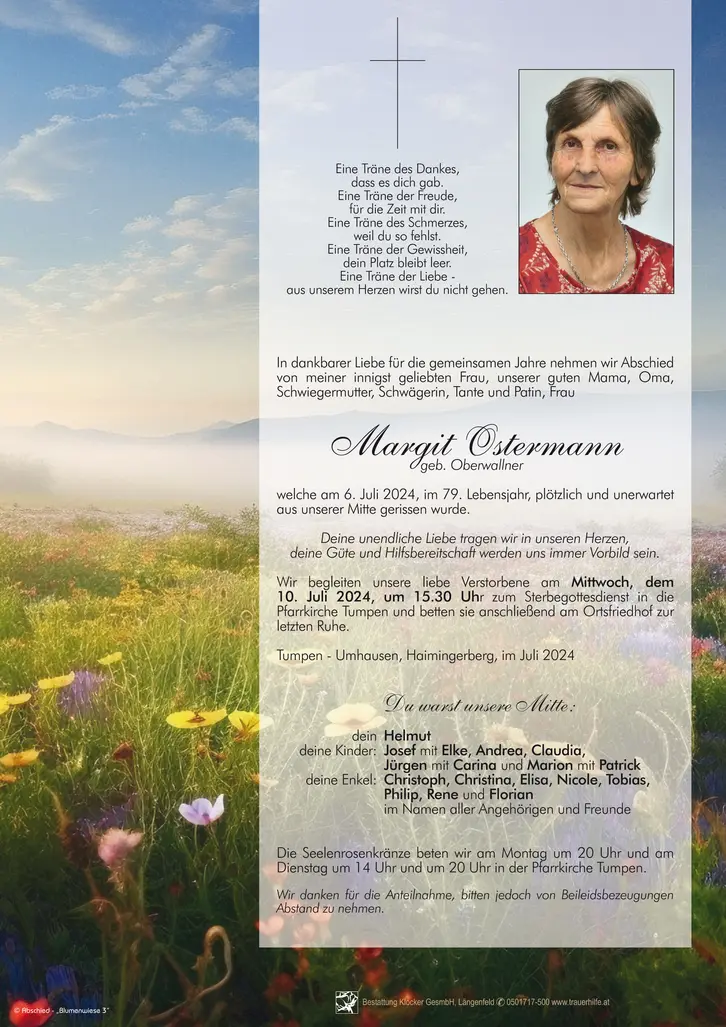 Eine Träne des Dankes,
dass es dich gab.
Eine Träne der Freude,
für die Zeit mit dir.
Eine Träne des Schmerzes,
weil du so fehlst.
Eine Träne der Gewissheit,
dein Platz bleibt leer.
Eine Träne der Liebe -
aus unserem Herzen wirst du nicht gehen.
In dankbarer Liebe für die gemeinsamen Jahre nehmen wir Abschied
von meiner innigst geliebten Frau, unserer guten Mama, Oma,
Schwiegermutter, Schwägerin, Tante und Patin, Frau
Margit Ostermann
geb. Oberwallner
welche am 6. Juli 2024, im 79. Lebensjahr, plötzlich und unerwartet
aus unserer Mitte gerissen wurde.
Deine unendliche Liebe tragen wir in unseren Herzen,
deine Güte und Hilfsbereitschaft werden uns immer Vorbild sein.
Wir begleiten unsere liebe Verstorbene am Mittwoch, dem
10. Juli 2024, um 15.30 Uhr zum Sterbegottesdienst in die
Pfarrkirche Tumpen und betten sie anschließend am Ortsfriedhof zur
letzten Ruhe.
Tumpen - Umhausen, Haimingerberg, im Juli 2024
Du warst unsere Mitte:
dein Helmut
deine Kinder: Josef mit Elke, Andrea, Claudia,
Jürgen mit Carina und Marion mit Patrick
deine Enkel: Christoph, Christina, Elisa, Nicole, Tobias,
Philip, Rene und Florian
im Namen aller Angehörigen und Freunde
Die Seelenrosenkränze beten wir am Montag um 20 Uhr und am
Dienstag um 14 Uhr und um 20 Uhr in der Pfarrkirche Tumpen.
Wir danken für die Anteilnahme, bitten jedoch von Beileidsbezeugungen
Abstand zu nehmen.
Bestattung Klocker GesmbH, Längenfeld ✆ 0501717-500 www.trauerhilfe.at
© Abschied - „Blumenwiese 3"